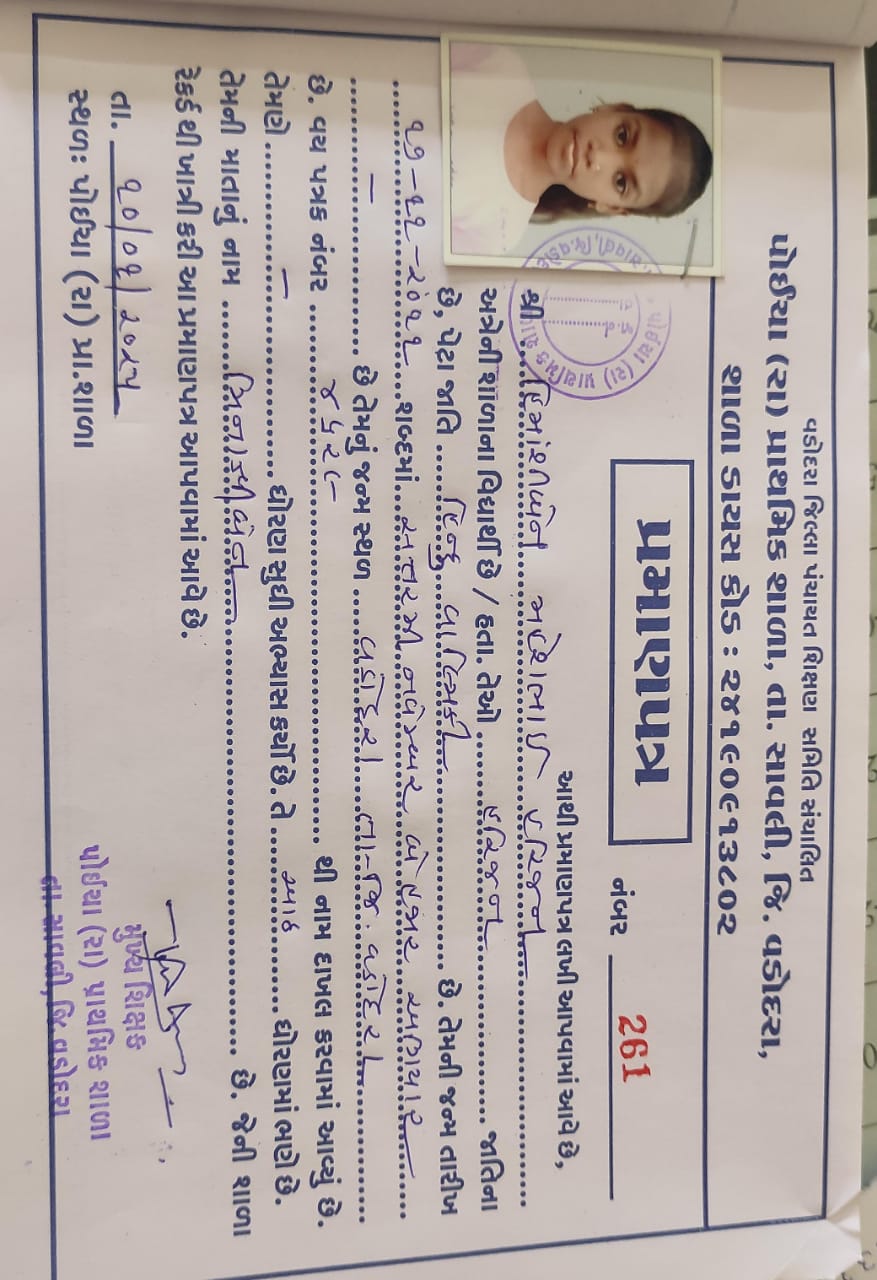 વડોદરા જિલ્લા પંચાયત શિક્ષણ સમિતિ સંચાલિત
પોઈચા (રા) પ્રાથમિક શાળા, તા. સાવલી, જિ. વડોદરા,
શાળા ડાયસ કોડ : ૨૪૧૯૦૯૧૩૮૦૨
પ્રમાણપત્ર
નંબર 261
આથી પ્રમાણપત્ર લખી આપવામાં આવે છે,
શ્રી હિમાંશીબેન મહેશભાઈ હરિજન
અત્રેની શાળાના વિદ્યાર્થી છે / હતા. તેઓ હરિજન જાતિના
છે, પેટા જાતિ હિન્દુ વાલ્મિકી છે. તેમની જન્મ તારીખ
-૧૧-૨૦૧૧ શબ્દમાં નવેમ્બર બે હજાર અગિયાર
- છે તેમનું જન્મ સ્થળ વડોદરા તા-જિ. વડોદરા
છે. વય પત્રક નંબર ૪૬૨૯ થી નામ દાખલ કરવામાં આવ્યું છે.
તેમણે - ધોરણ સુધી અભ્યાસ કર્યો છે. તે આઠ ધોરણમાં ભણે છે.
તેમની માતાનું નામ મિનાક્ષીબેન છે. જેની શાળા
રેકર્ડ થી ખાત્રી કરી આ પ્રમાણપત્ર આપવામાં આવે છે.
તા. ૧૦/૦૧/૨૦૨૫
સ્થળ: પોઈચા (રા) પ્રા.શાળા
મુખ્ય શિક્ષક
પોઈચા (રા) પ્રાથમિક શાળા
તા.સાવલી, જિ.વડોદરા